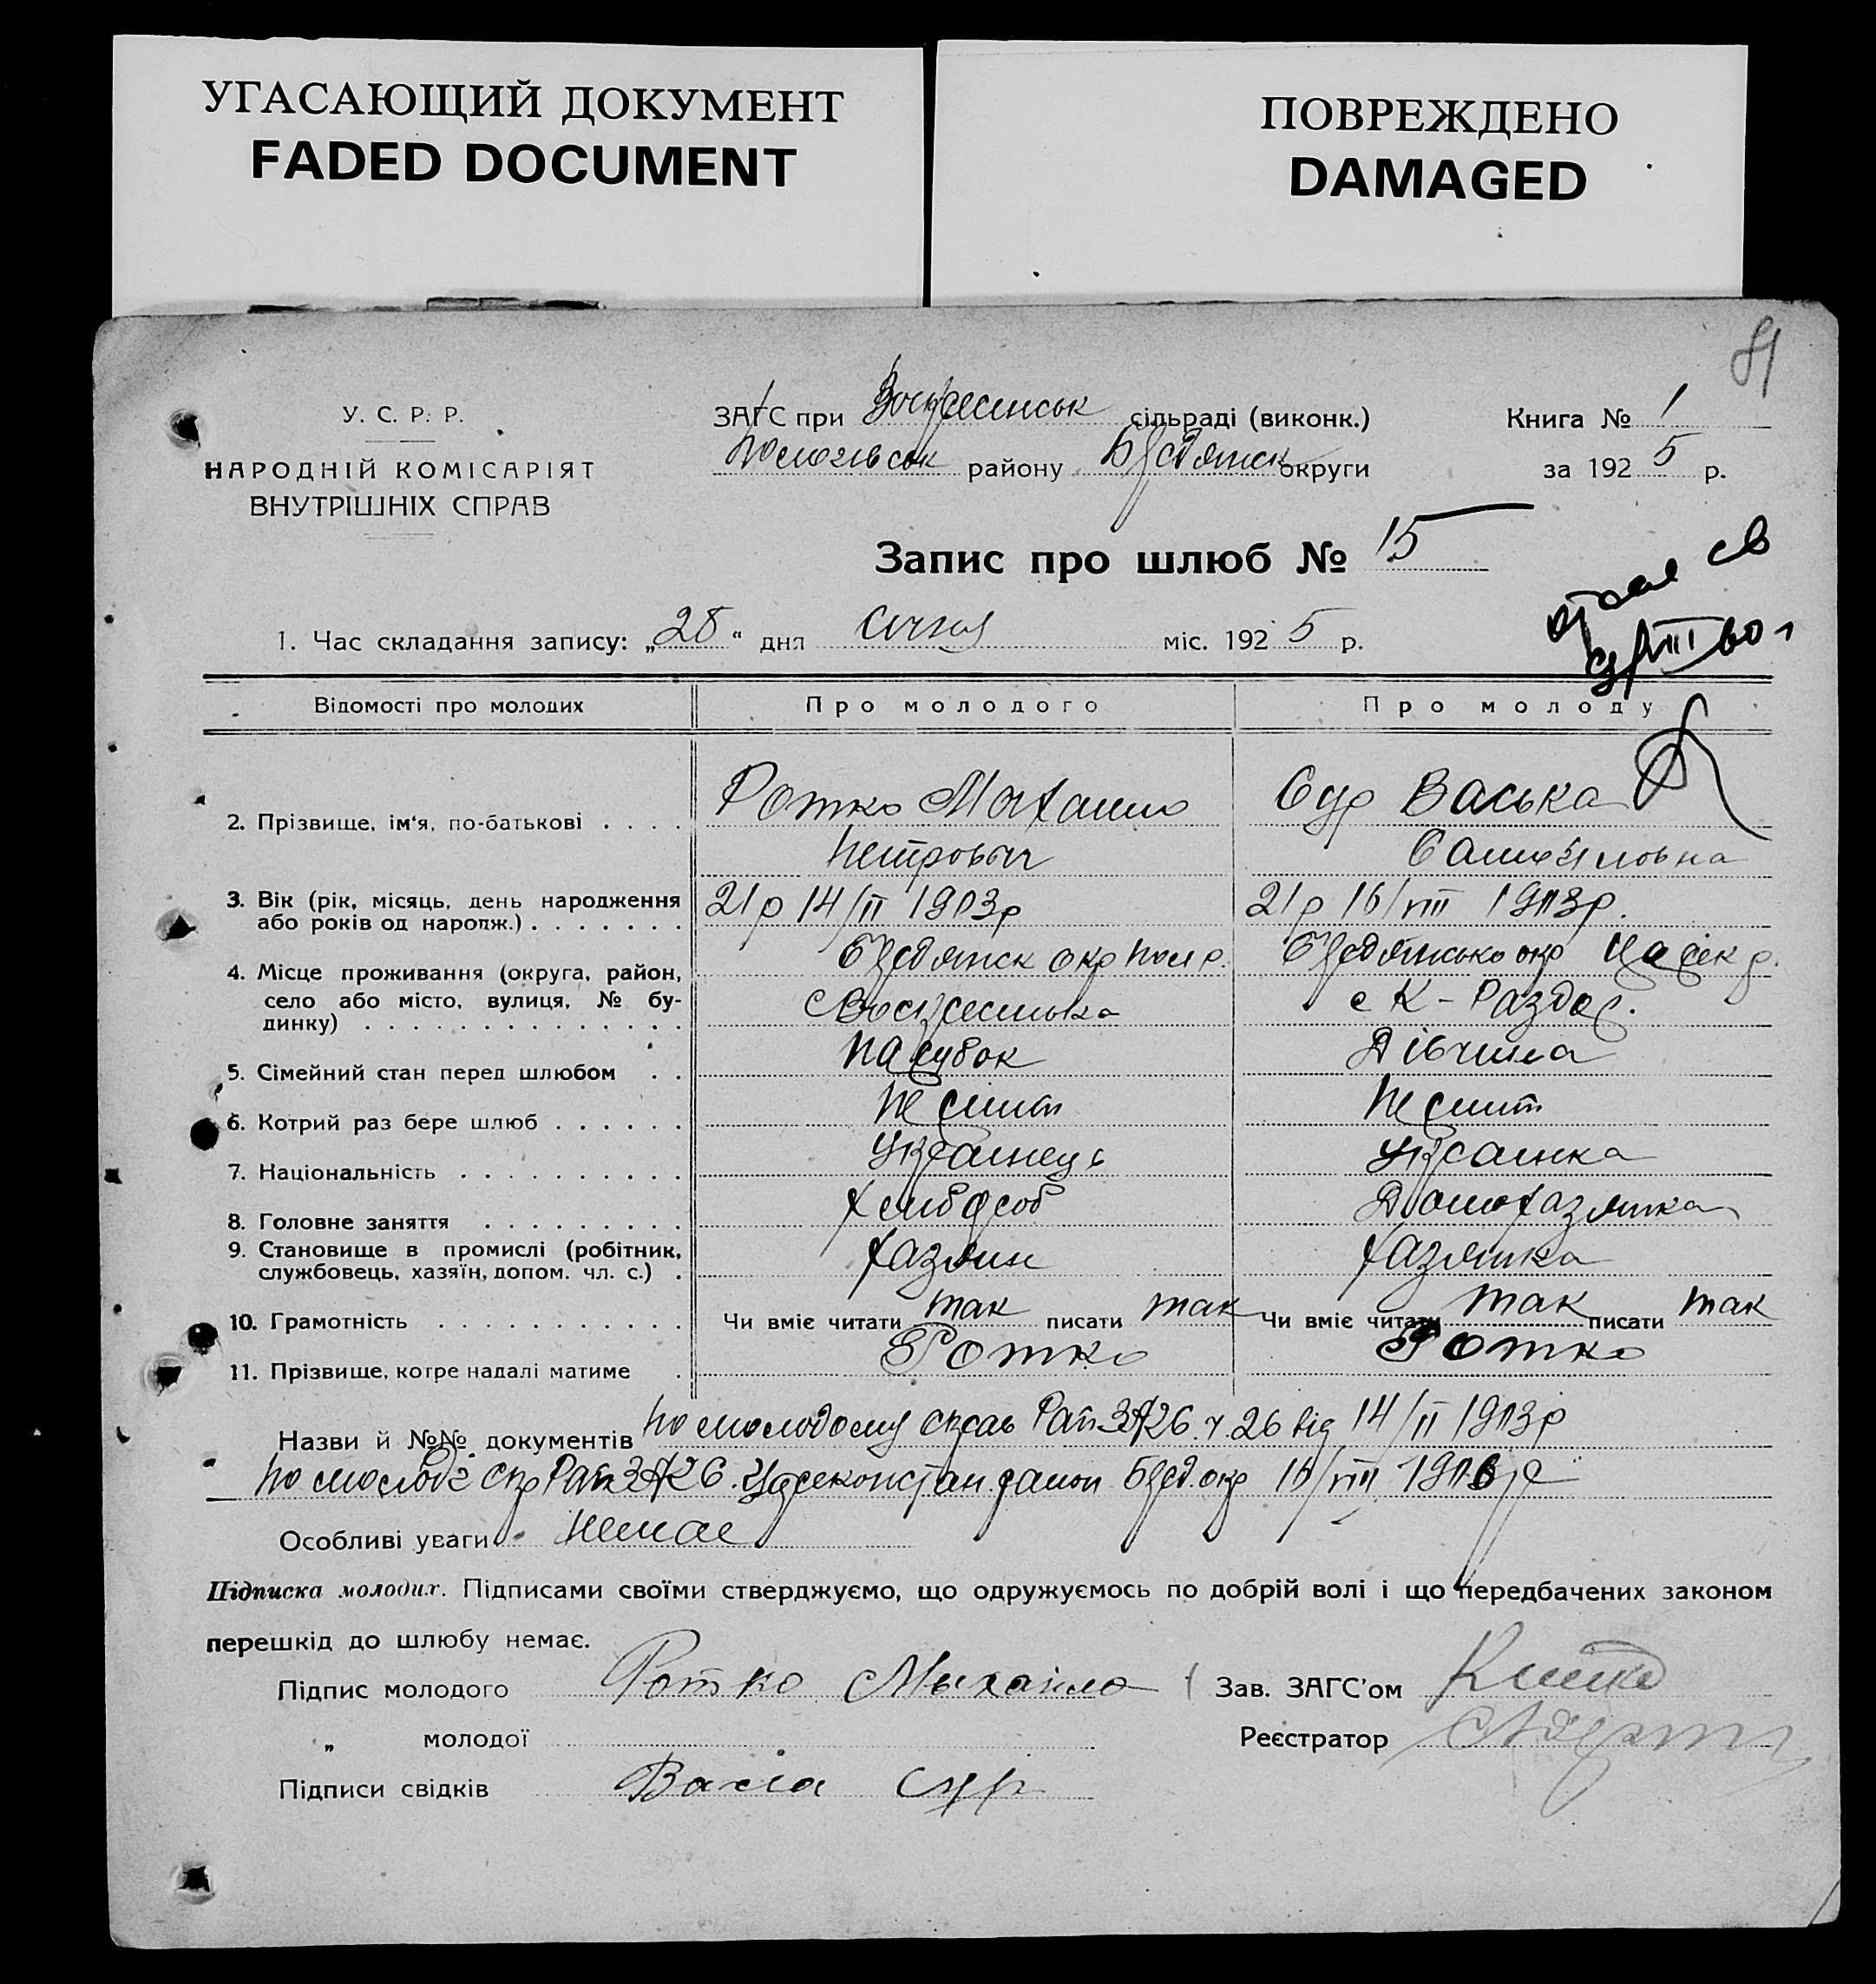 УГАСАЮЩИЙ ДОКУМЕНТ
FADED DOCUMENT
ПОВРЕЖДЕНО
DAMAGED
81
У. С. Р. Р.
НАРОДНІЙ КОМІСАРІЯТ
ВНУТРІШНІХ СПРАВ
ЗАГС при Воскресенськ сільраді (виконк.)
району Бердянск округи
Книга № 1
за 1925 р.
Запис про шлюб № 15
1. Час складання запису: „28“ дня січня міс. 1925 р.
Відомості про молодих Про молодого Про молоду
2. Прізвище, ім'я, по-батькові Ротко Михаило Сур Васька
Петрович
3. Вік (рік, місяць, день народження або років од народж.) 21 р 14/II 1903р 21 р 16/VIII 1903р.
4. Місце проживання (округа, район, село або місто, вулиця, № будинку) Бердянск окр Пол р. Бердянсько окр
Воскресенька с К - Раздор.
5. Сімейний стан перед шлюбом Парубок Дівчина
6. Котрий раз бере шлюб
7. Національність Українець Українка
8. Головне заняття Хлібороб Домохазяйка
9. Становище в промислі (робітник, службовець, хазяїн, допом. чл. с.) Хазяин Хазяйка
10. Грамотність Чи вміє читати так писати так Чи вміє читати так писати так
11. Прізвище, котре надалі матиме Ротко Ротко
Назви й №№ документів По молодому 26 від 14/II 1903р
По молоді окр 16/VIII
Особливі уваги Немає
Підписка молодих. Підписами своїми стверджуємо, що одружуємось по добрій волі і що передбачених законом
перешкід до шлюбу немає.
Підпис молодого Ротко Михаило Зав. ЗАГС'ом
„ молодої Реєстратор
Підписи свідків Васіа Сур